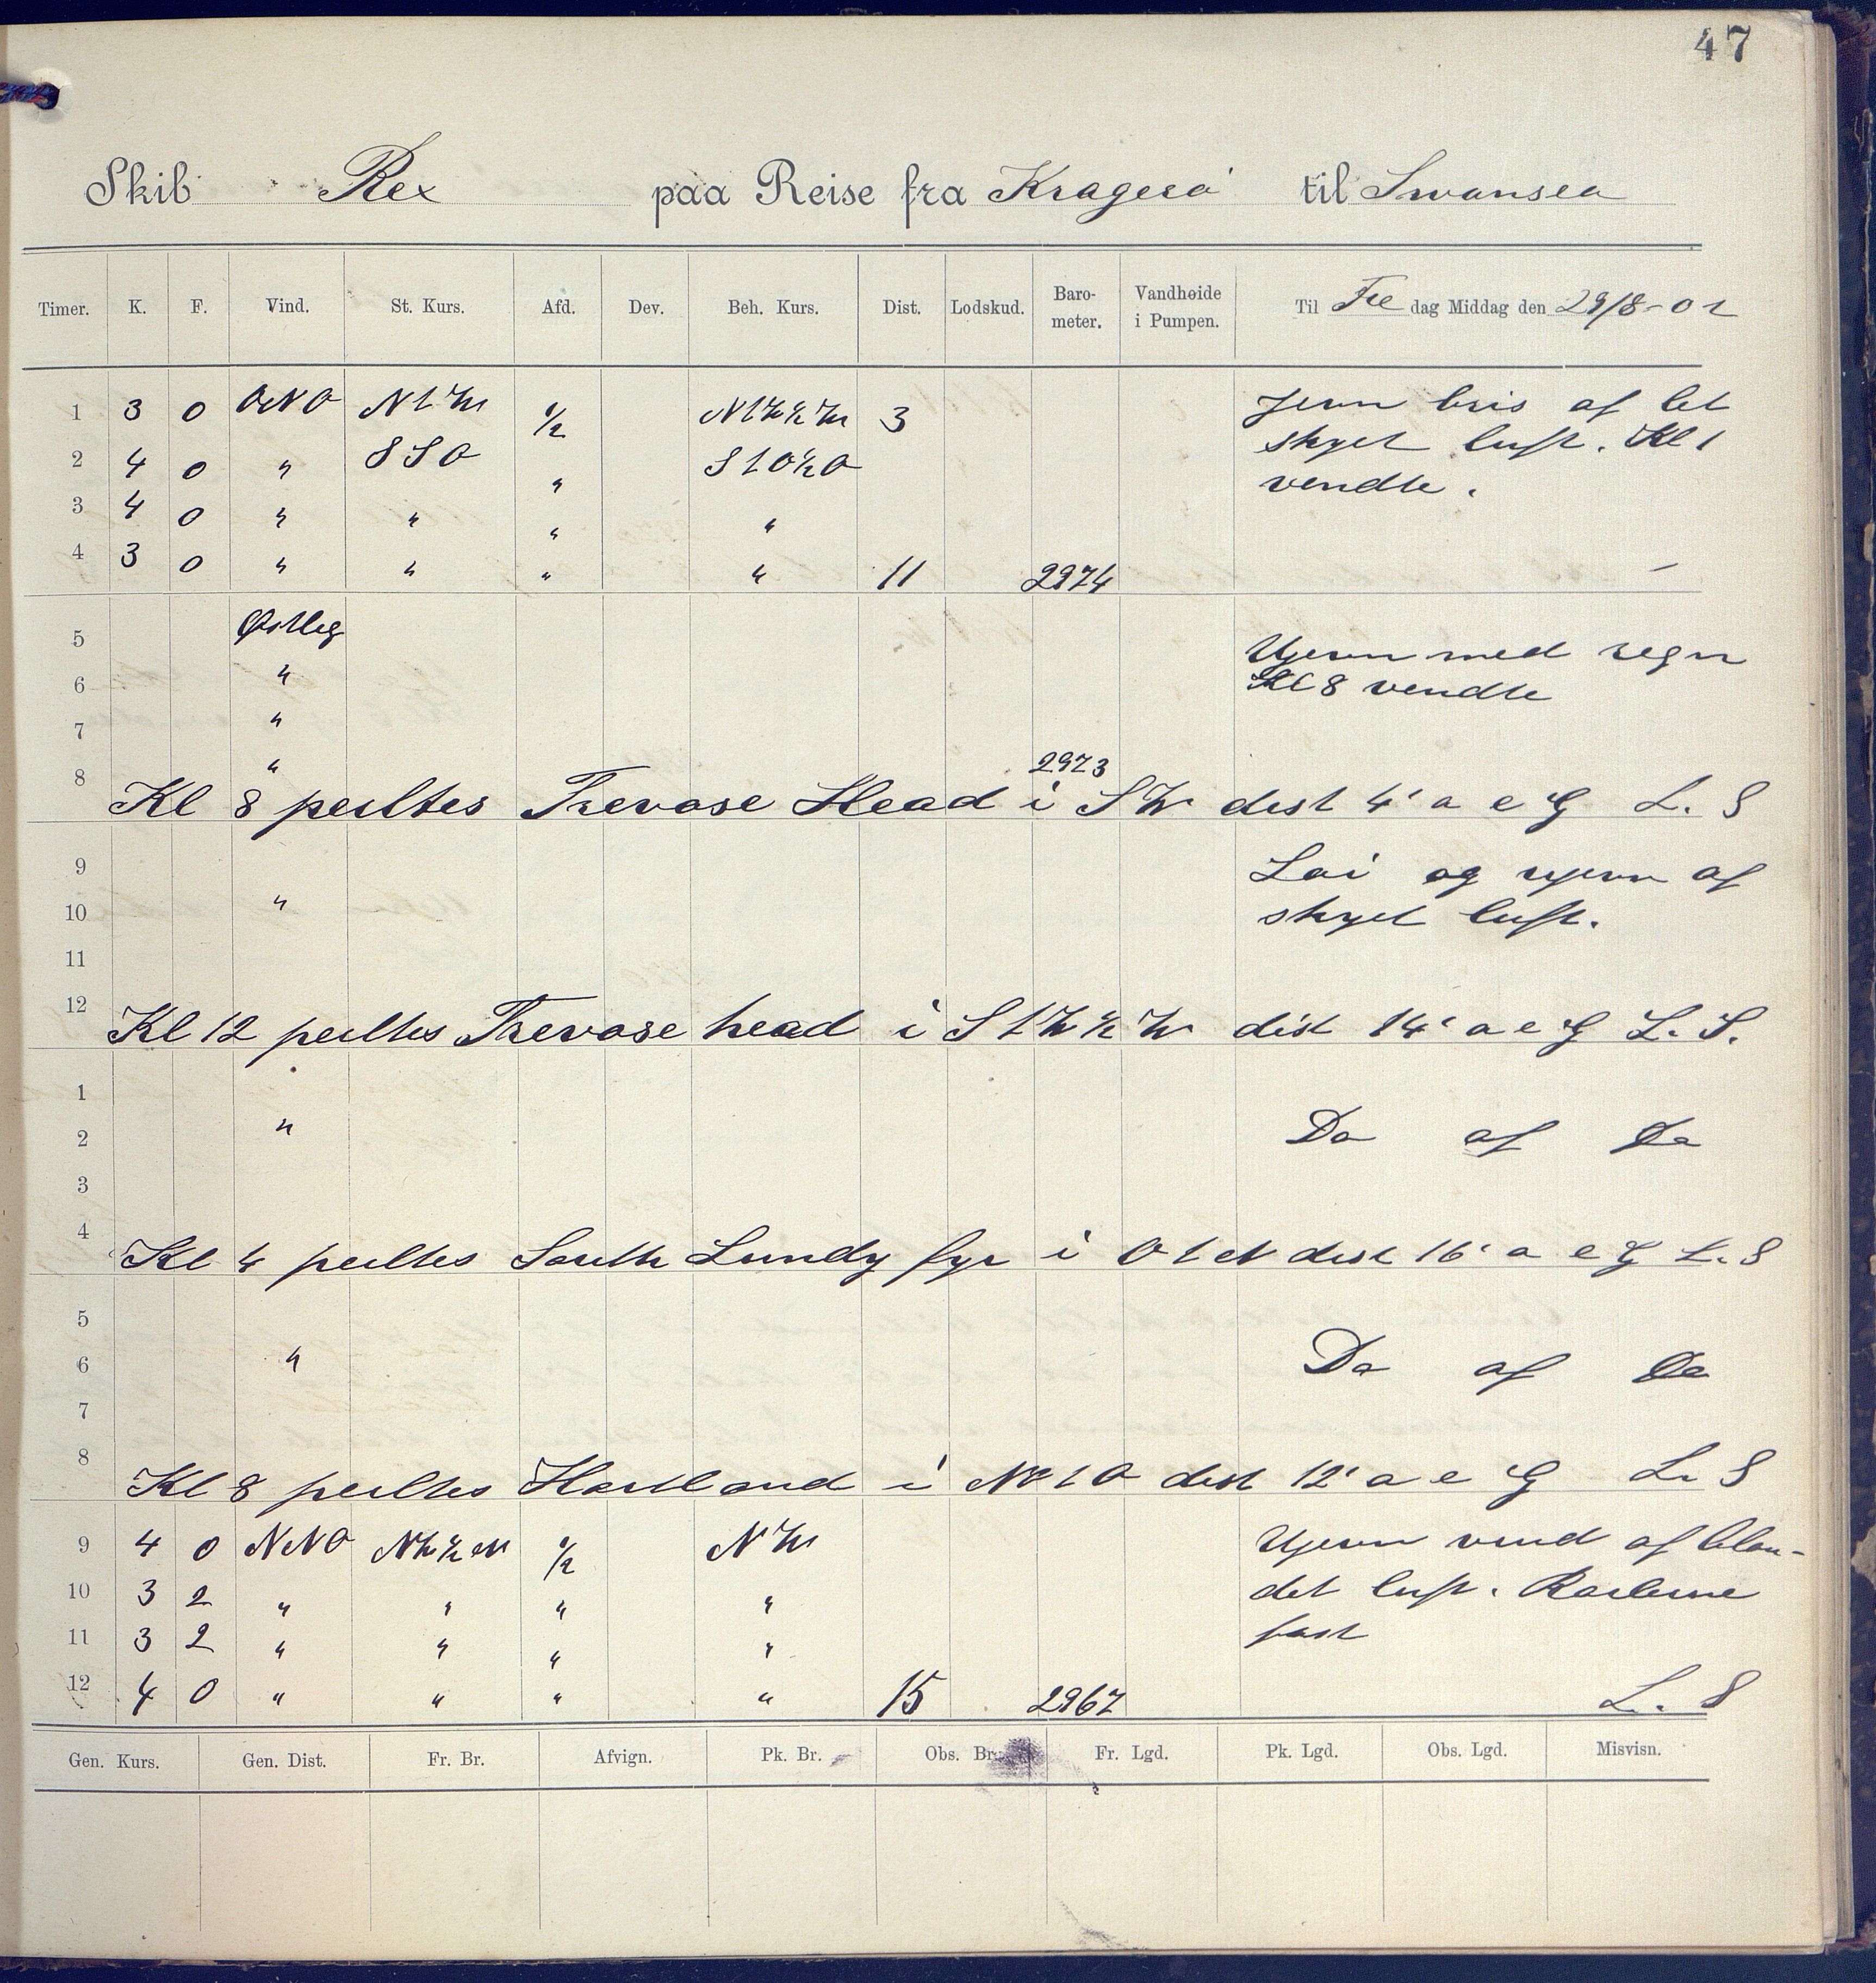 47
Skib Rex paa Reise fra Kragerö til Swansea
Timer. K. F. Vind. St. Kurs. Afd. Dev. Beh. Kurs. Dist. Lodskud. Baro-meter. Vandhøide i Pumpen. Til Fre dag Middag den 29/8-02
1 3 0 ONO N t W 1/2 N t W ½ W 3 Jevn bris af let
2 4 0 " SSO " S t O ½ O skyet luft. Kl 1
3 4 0 " " " " vendte.
4 3 0 " " " " 11 2974 —
5 Østleg
6 " Ujevn med regn
7 " Kl 8 vendte
8 " 2973
Kl 8 peiltes Trevose Head i SW dist 4' a e G L. S
9 Løi og ujevn af
10 " skyet luft.
11
12
Kl 12 peiltes Trevose head i S t W ½ W dist 14' a e G L. S.
1
2 " Do af Do
3
4
Kl 4 peiltes South Lundy fyr i O t N dist 16' a e G L. S
5
6 " Do af Do
7
8
Kl 8 peiltes Hartland i NO t O dist 12' a e G L. S
9 4 0 NNO NW ½ N 1/2 NW Ujevn vind af blan-
10 3 2 " " " " det luft.
11 3 2 " " " " fast
12 4 0 " " " " 15 2967 L. S
Gen. Kurs. Gen. Dist. Fr. Br. Afvign. Pk. Br. Obs. Br. Fr. Lgd. Pk. Lgd. Obs. Lgd. Misvisn.